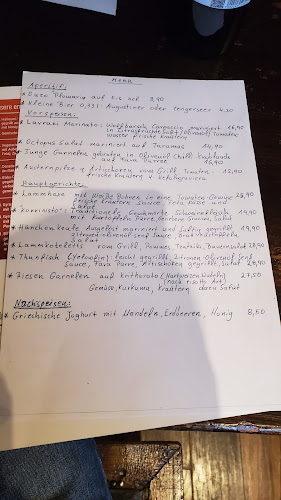 Menu
Aperitif:
* Ouzo Plomario auf Eis 2cl 3,90
* Kleine Bier 0,33l: Augustiner oder Tegernseer 4,30
Vorspeisen:
* Lavraki Marinato: Wolfbarsch, Carpaccio mariniert 16,90
in Zitrusfrüchte Saft / Olivenöl, Tomaten,
Wasser frische Kräuter
* Octopus Salat mariniert auf Taramas 14,90
* Junge Garnelen gebraten in Olivenöl Chili, Knoblauch
auf Fava Püree 16,90
* Austernpilze & Artischocken vom Grill, Tomaten,
frische Kräuter & Kefalograviera
Hauptgerichte:
* Lammhaxe mit Weiße Bohnen in eine Tomaten-Gemüse 25,90
frische Kräuter - Feta Käse und
Salat
* Traditionelle Geschmorte Schweinefleisch
mit Kartoffeln Püree, Salat
* Hähnchenkeule Ausgelöst mariniert und Saftig gegrillt
Zitronen-Olivenöl-Senf Sauce, Bratkartoffeln
Salat
* Lammkoteletts vom Grill, Pommes, Tzatziki, Bauernsalat 28,90
* Thunfisch (Yelowfin): leicht gegrillt, Zitronen-Olivenöl-Senf
Sauce, Fava Pürre, Artischoken gegrillt, Salat 28,90
* Riesen Garnelen auf Kritharota (Hartweizen Nudeln) 27,50
(nach risotto Art)
Gemüse, Kurkuma, Kräutern dazu Salat
Nachspeisen:
* Griechische Joghurt mit Mandeln, Erdbeeren, Honig 8,50